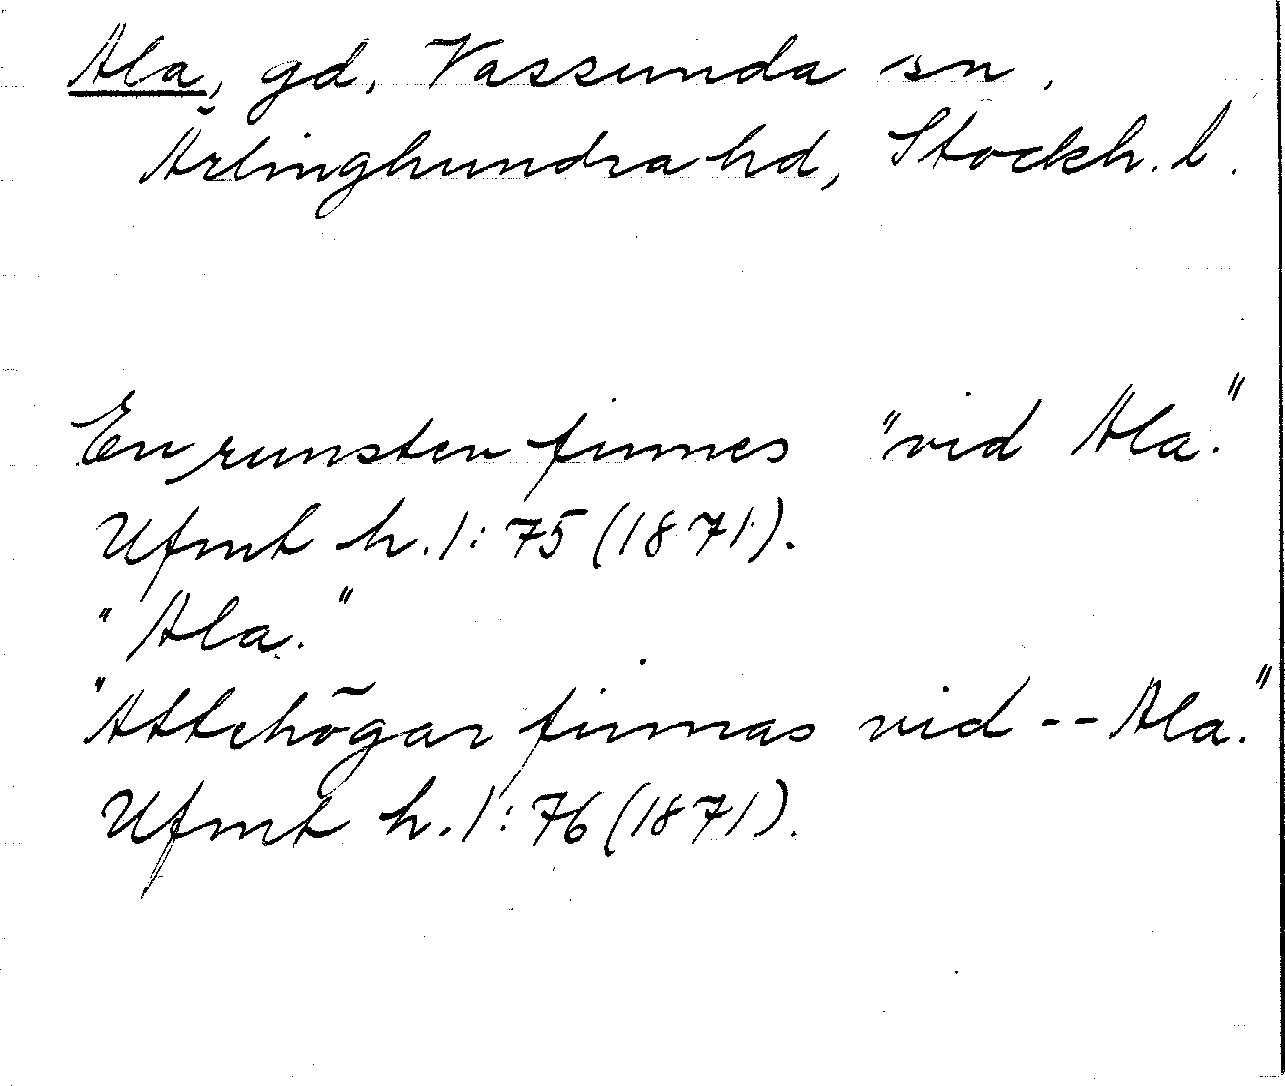 Ala, gd, Vassunda sn,
Ärlinghundra hd, Stockh. l.
En runsten finnes "vid Ala."
Ufmt h. 1:75 (1871).
"Ala."
"Attehögar finnas vid -- Ala."
Ufmt h. 1:76 (1871).